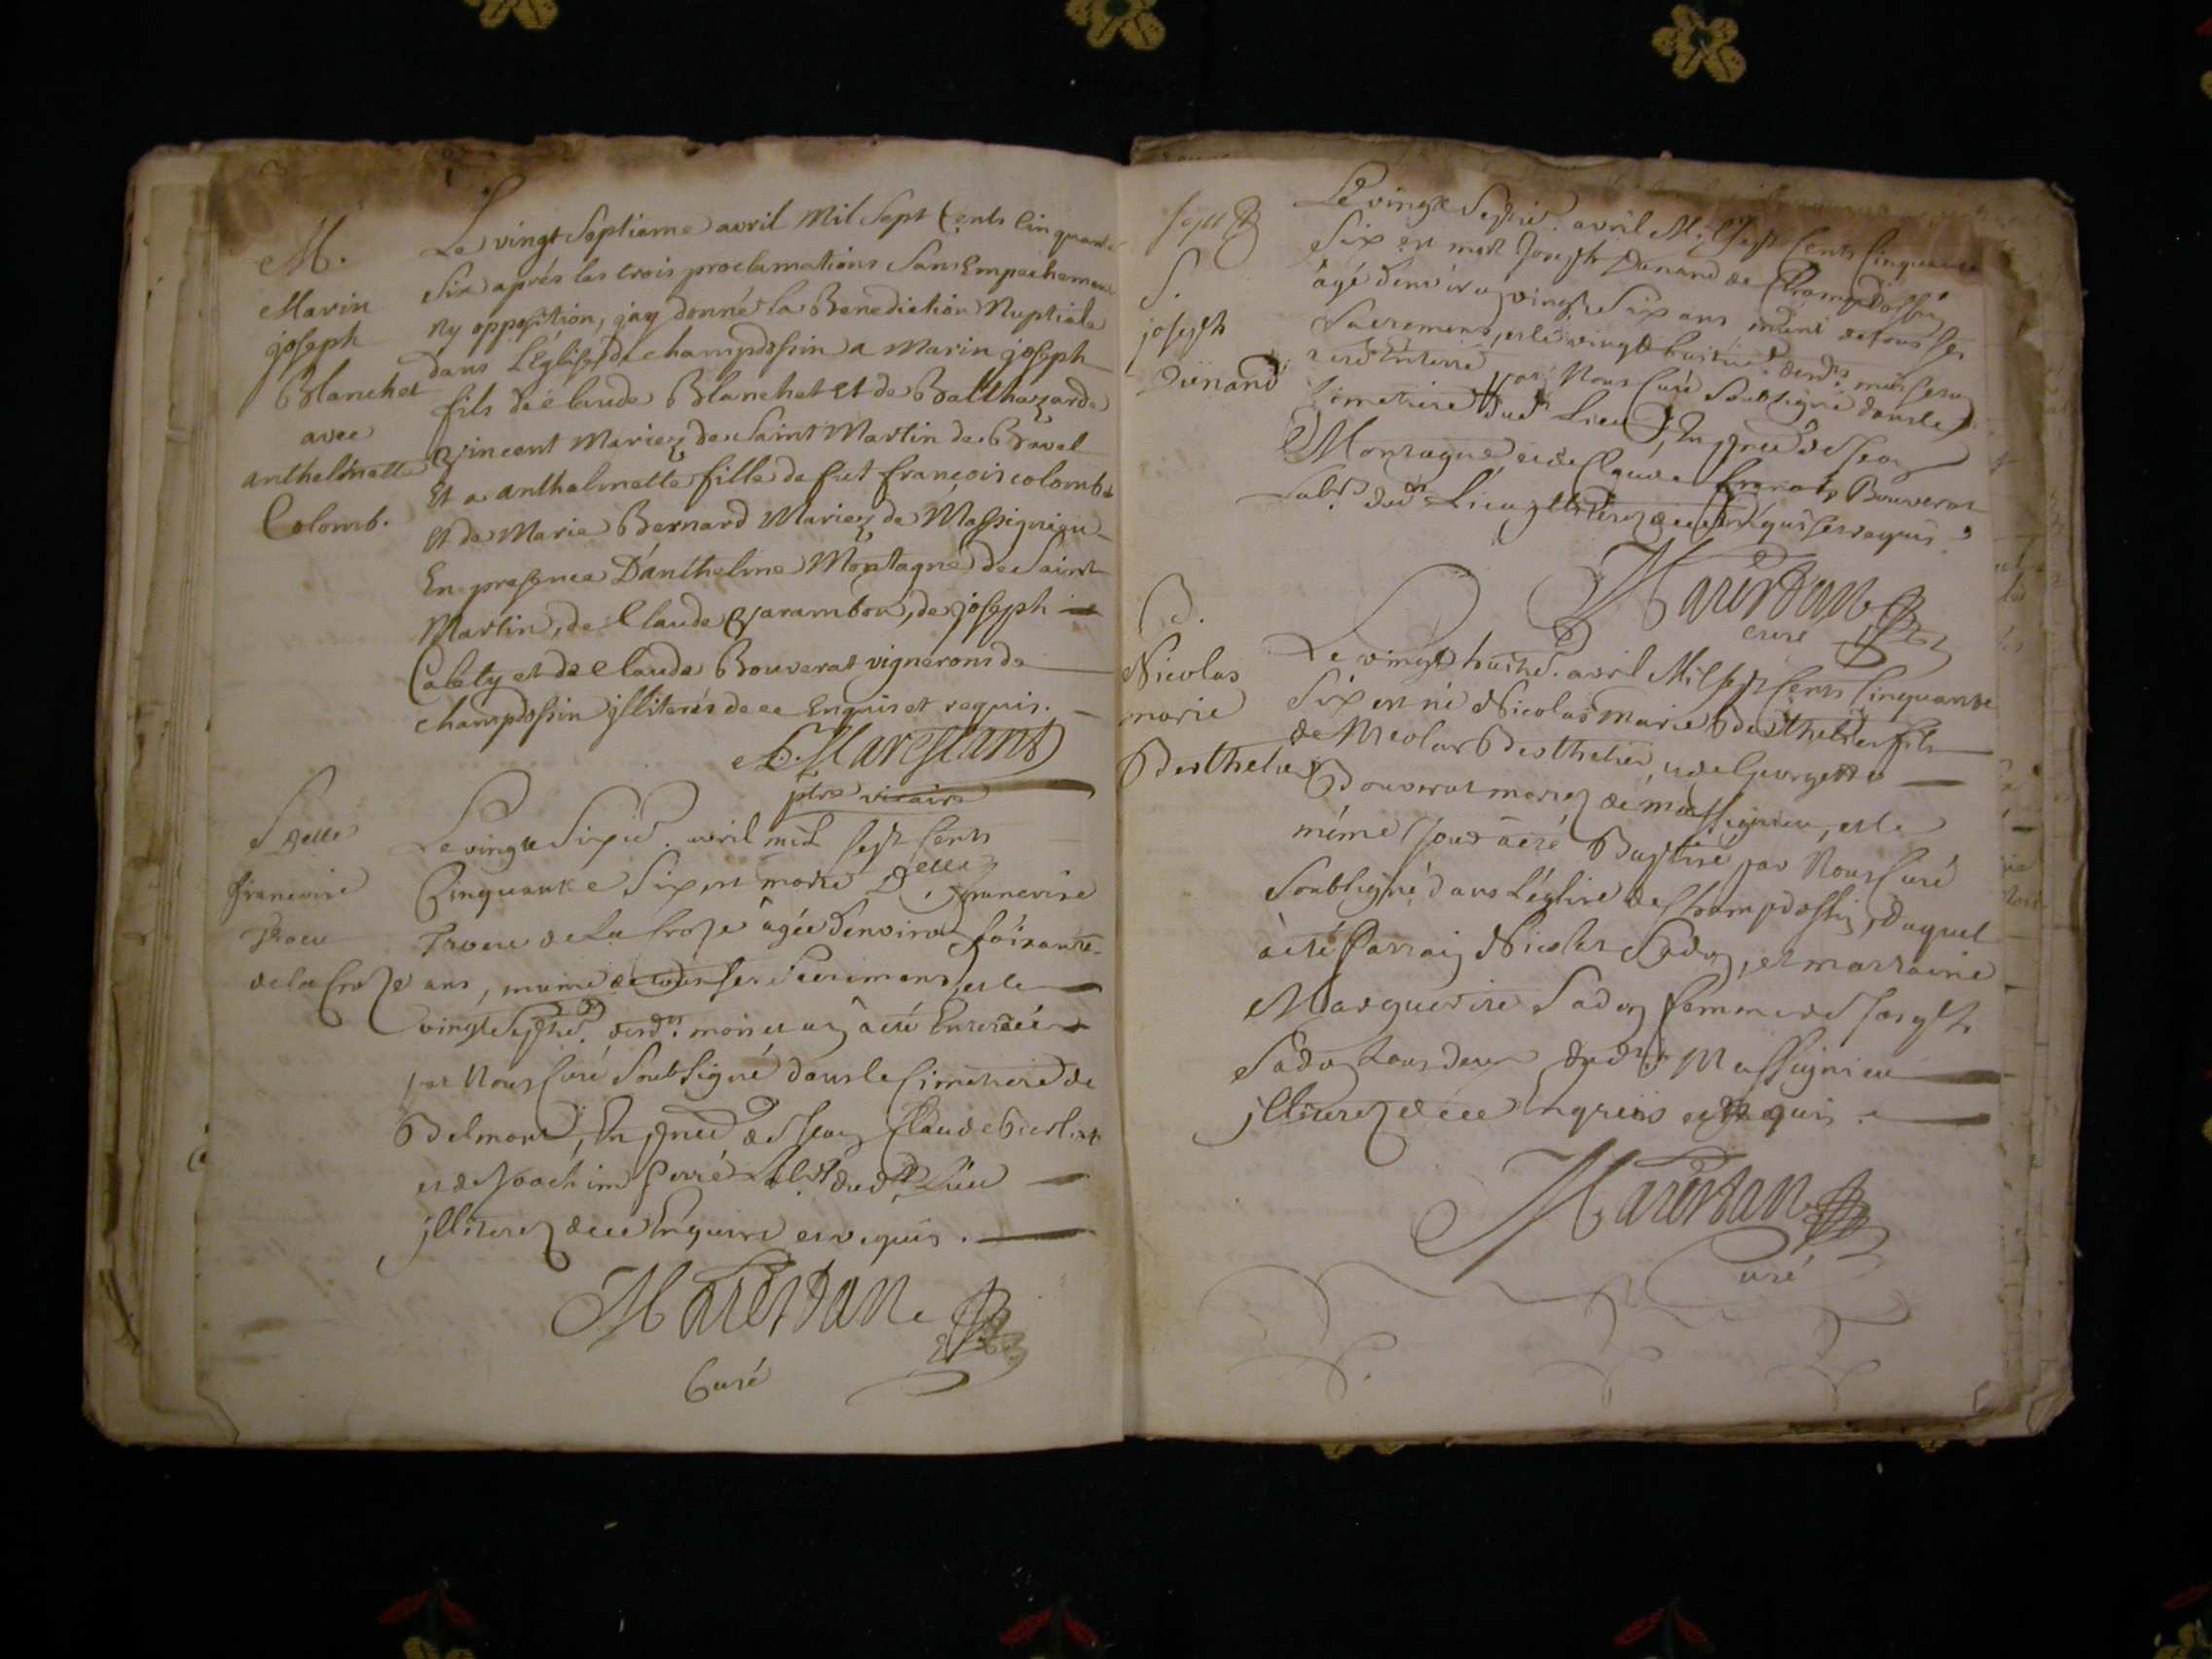 M.
Marin
joseph
Blanchet
avec
anthelmette
Colomb.
Le vingt Septieme avril Mil Sept Cents Cinquante
Six aprés les trois proclamations Sans Empechement
ny opposition, jay donné la Benediction Nuptiale
dans L'Eglise de champdossin a Marin joseph
fils de claude Blanchet et de Balthazarde
Vincent Mariez de Saint Martin de Bavel
Et a anthelmette fille de fut françois colomb
et de Marie Bernard Mariez de Massignieu
En presence D'anthelme Montagne de Saint
Martin, de Claude Varambon, de joseph
Calety et de claude Bouverat vignerons de
champdossin jlliterés de ce Enquis et requis.
Marestant
ptre vicaire
S Delle
francoise
Trocu
de la Croze
Le vingt Sixie. avril mil sept Cents
Cinquante Six est morte Delle francoise
Trocu de La Croze âgée d'environ soixante
ans, munie de tous ses Sacremens, et le
vingt Septie. dudt. mois et an a été Enterrée
par Nous Curé Soubsigné dans le Cimetiere de
Belmont, En pnce de Jean Claude
et de Joachim Perré Labrs dudt. Lieu
jlliterez de ce Enquis et requis.
Marestan
Curé
S.
joseph
Dunand
Le vingt Septie. avril Mil Sept Cents Cinquante
Six est mort Joseph Dunand de Champdossin
âgé d'environ vingt Six ans muni de tous ses
Sacremens, et le vingt huitie. dudt. mois
a été Enterré par Nous Curé Soubsigné dans le
Cimetiere dudt. Lieu, En pnce de Jean
Montagne et de Claude Bouverat
Labrs. dudt. Lieu jlliterez de ce Enquis et requis.
Marestan
curé
B.
Nicolas
marie
Berthelier
Le vingt huitie. avril Mil sept Cents Cinquante
Six est né Nicolas Marie Berthelier fils
de Nicolas Berthelier, et de Georgette
Bouverat mariez de Massignieu, et le
méme Jour a été Baptisé par Nous Curé
Soubsigné dans L'église de Champdossin, duquel
a été Parrain Nicolas Sadon, et marraine
Marguerite Sadon femme de Joseph
Sadon tous deux dudt. Massignieu
jlliterez de ce Enquis et requis.
Marestan
Curé